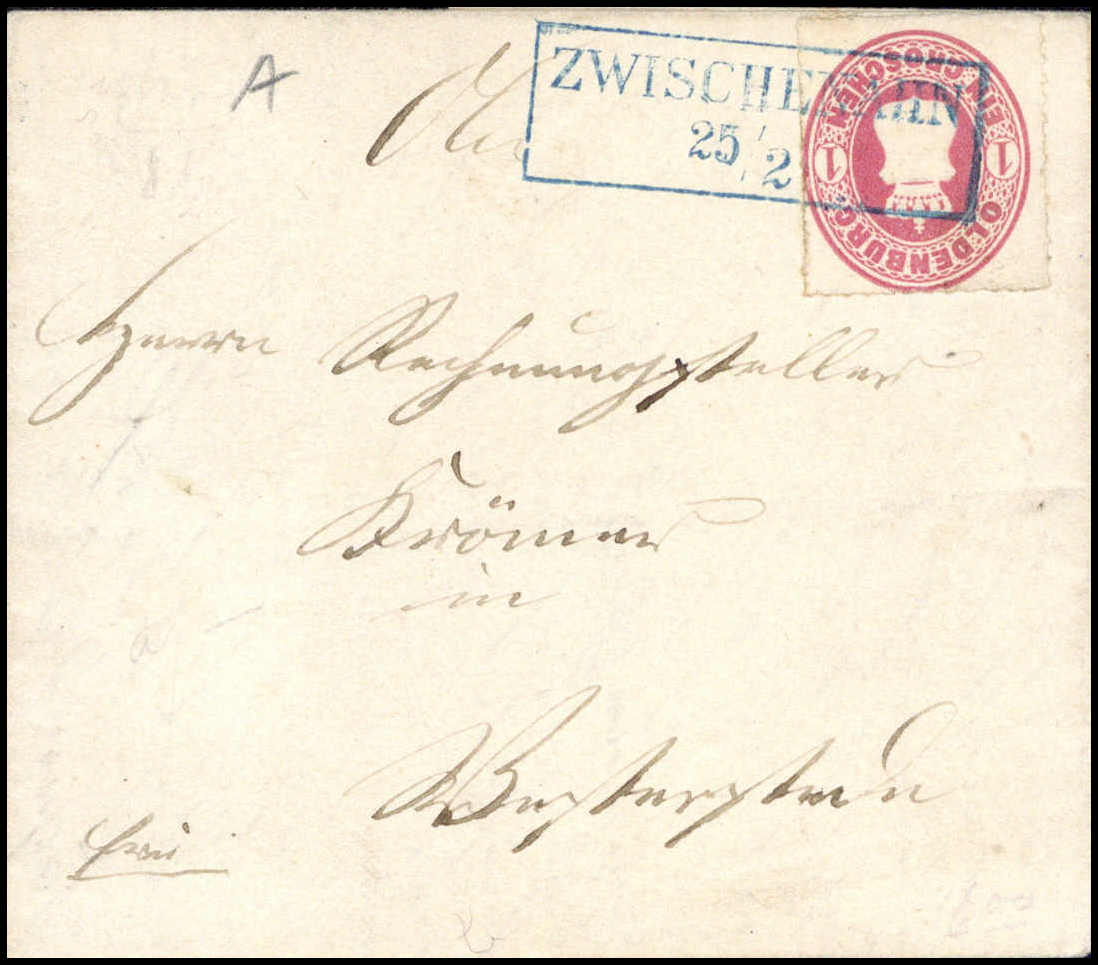 A
ZWISCHENAHN
25/2
EIN GROSCHEN
1 1
OLDENBURG
An
Herrn Rechnungsteller
Krömer
in
Westerstede
frei